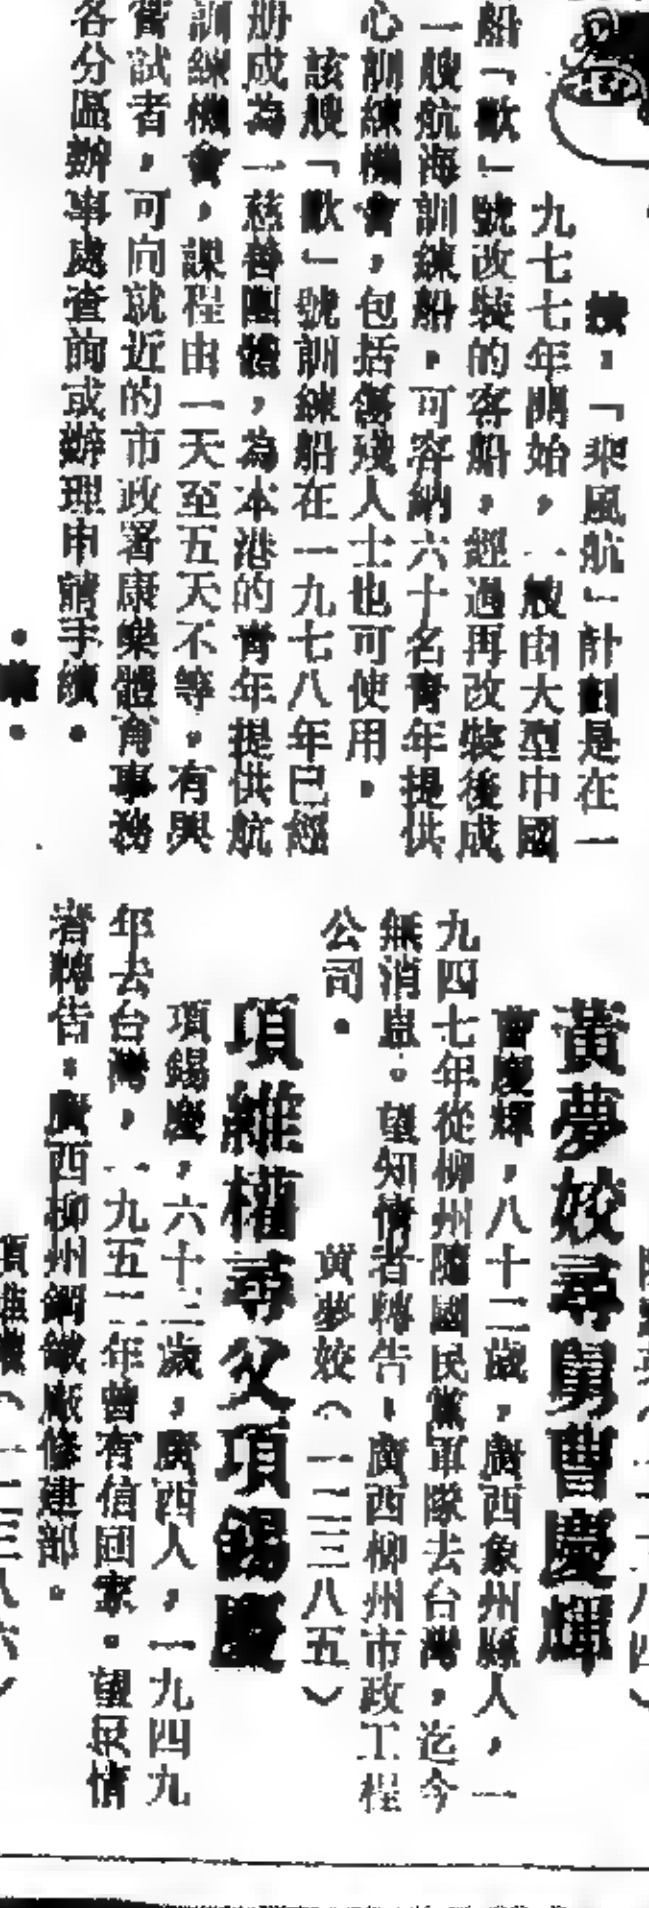 按：「乘風航」計劃是在一
九七七年開始，一艘由大型中國
船「歡」號改裝的客船，經過再改裝後成
一艘航海訓練船，可容納六十名青年提供
心訓練機會，包括傷殘人士也可使用。
該艘「歡」號訓練船在一九七八年已經
册成為一慈善團體，為本港的青年提供航
訓練機會，課程由一天至五天不等，有興
嘗試者，可向就近的市政署康樂體育事務
各分區辦事處查詢或辦理申請手續。
•華•
黃夢姣尋舅曹慶輝
曹慶輝，八十二歲，廣西象州縣人，一
九四七年從柳州隨國民黨軍隊去台灣，迄今
無消息。望知情者轉告，廣西柳州市政工程
公司。
黃夢姣（一二三八五）
項維權尋父項錫慶
項錫慶，六十三歲，廣西人，一九四九
年去台灣，一九五二年曾有信回家。望知情
者轉告：廣西柳州鋼鐵廠修建部。
項維權（一二三八六）